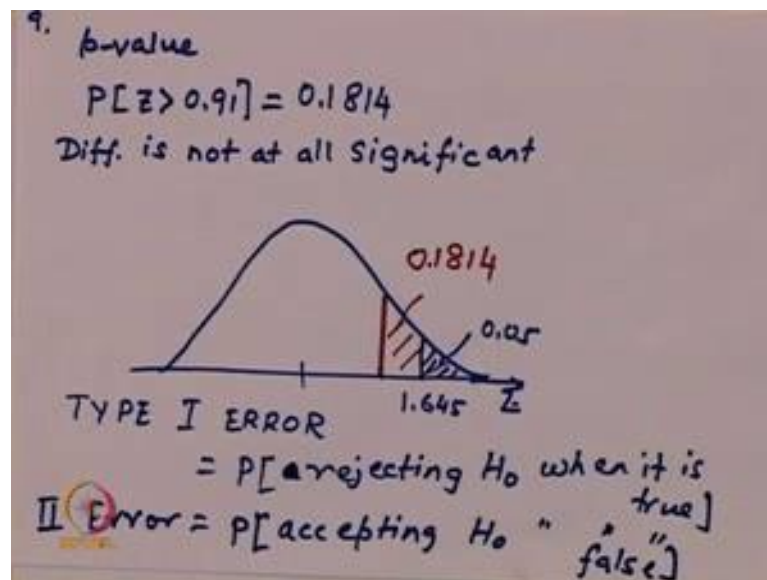 9.
p-value
P[Z> 0.91] = 0.1814
Diff. is not at all significant
0.1814
0.05
1.645 Z
TYPE I ERROR
= P[rejecting H₀ when it is
true]
II Error = P[accepting H₀ " " "
false]